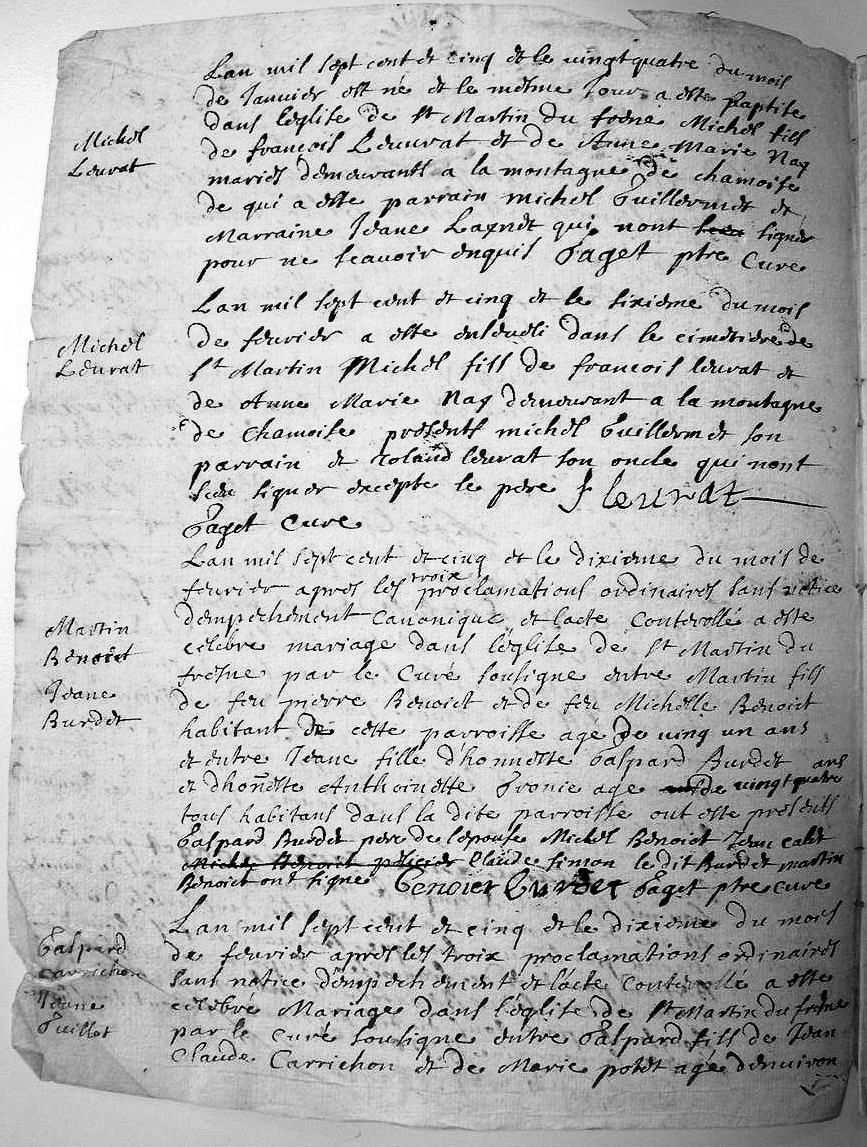 Michel
Leurat
Lan mil sept cent et cinq et le vingtquatre du mois
de Janvier est né et le mesme Jour a esté baptisé
dans leglise de St Martin du frene Michel fils
de francois Leuvrat et de Anne Marie Nay
mariés demeurants a la montagne de chamoise
de qui a esté parrain michel Guillermet et
Marraine Jeane Lagnet qui nont sceu signer
pour ne scavoir enquis Gaget ptre Cure
Michel
Leurat
Lan mil sept cent et cinq et le sixieme du mois
de fevrier a esté enseueli dans le cimetiere de
St Martin Michel fils de francois leurat et
de Anne Marie Nay demeurant a la montagne
de chamoise présents michel Guillermet son
parrain et roland leurat son oncle qui nont
sceu signer excepté le pere f leurat
Gaget Cure
Martin
Benoict
Jeane
Burdet
Lan mil sept cent et cinq et le dixieme du mois de
fevrier apres les troix proclamations ordinaires sans notice
dempechement canonique et lacte Controllé a esté
celebré mariage dans leglise de St Martin du
fresne par le Curé sousigné entre Martin fils
de feu pierre Benoict et de feu Michelle Benoict
habitant de cette parroisse agé de vinq un ans
et entre Jeane fille dhonneste Gaspard Burdet ans
et dhoneste Anthoinette agé de vingtquatre
tous habitans dans la dite parroisse ont esté présents
Gaspard Burdet pere de lepouse Michel Benoict Jean
Michel Benoict Claude Simon le dit Burdet martin
Benoict ont signé Benoict Burdet Gaget ptre cure
Gaspard
Carrichon
Jeane
Guillot
Lan mil sept cent et cinq et le dixieme du mois
de fevrier apres les troix proclamations ordinaires
sans notice dempechement et lacte Controllé a esté
celebré Mariage dans leglise de St Martin du frêne
par le curé sousigné entre Gaspard fils de Jean
Claude Carrichon et de Marie potet agé denviron